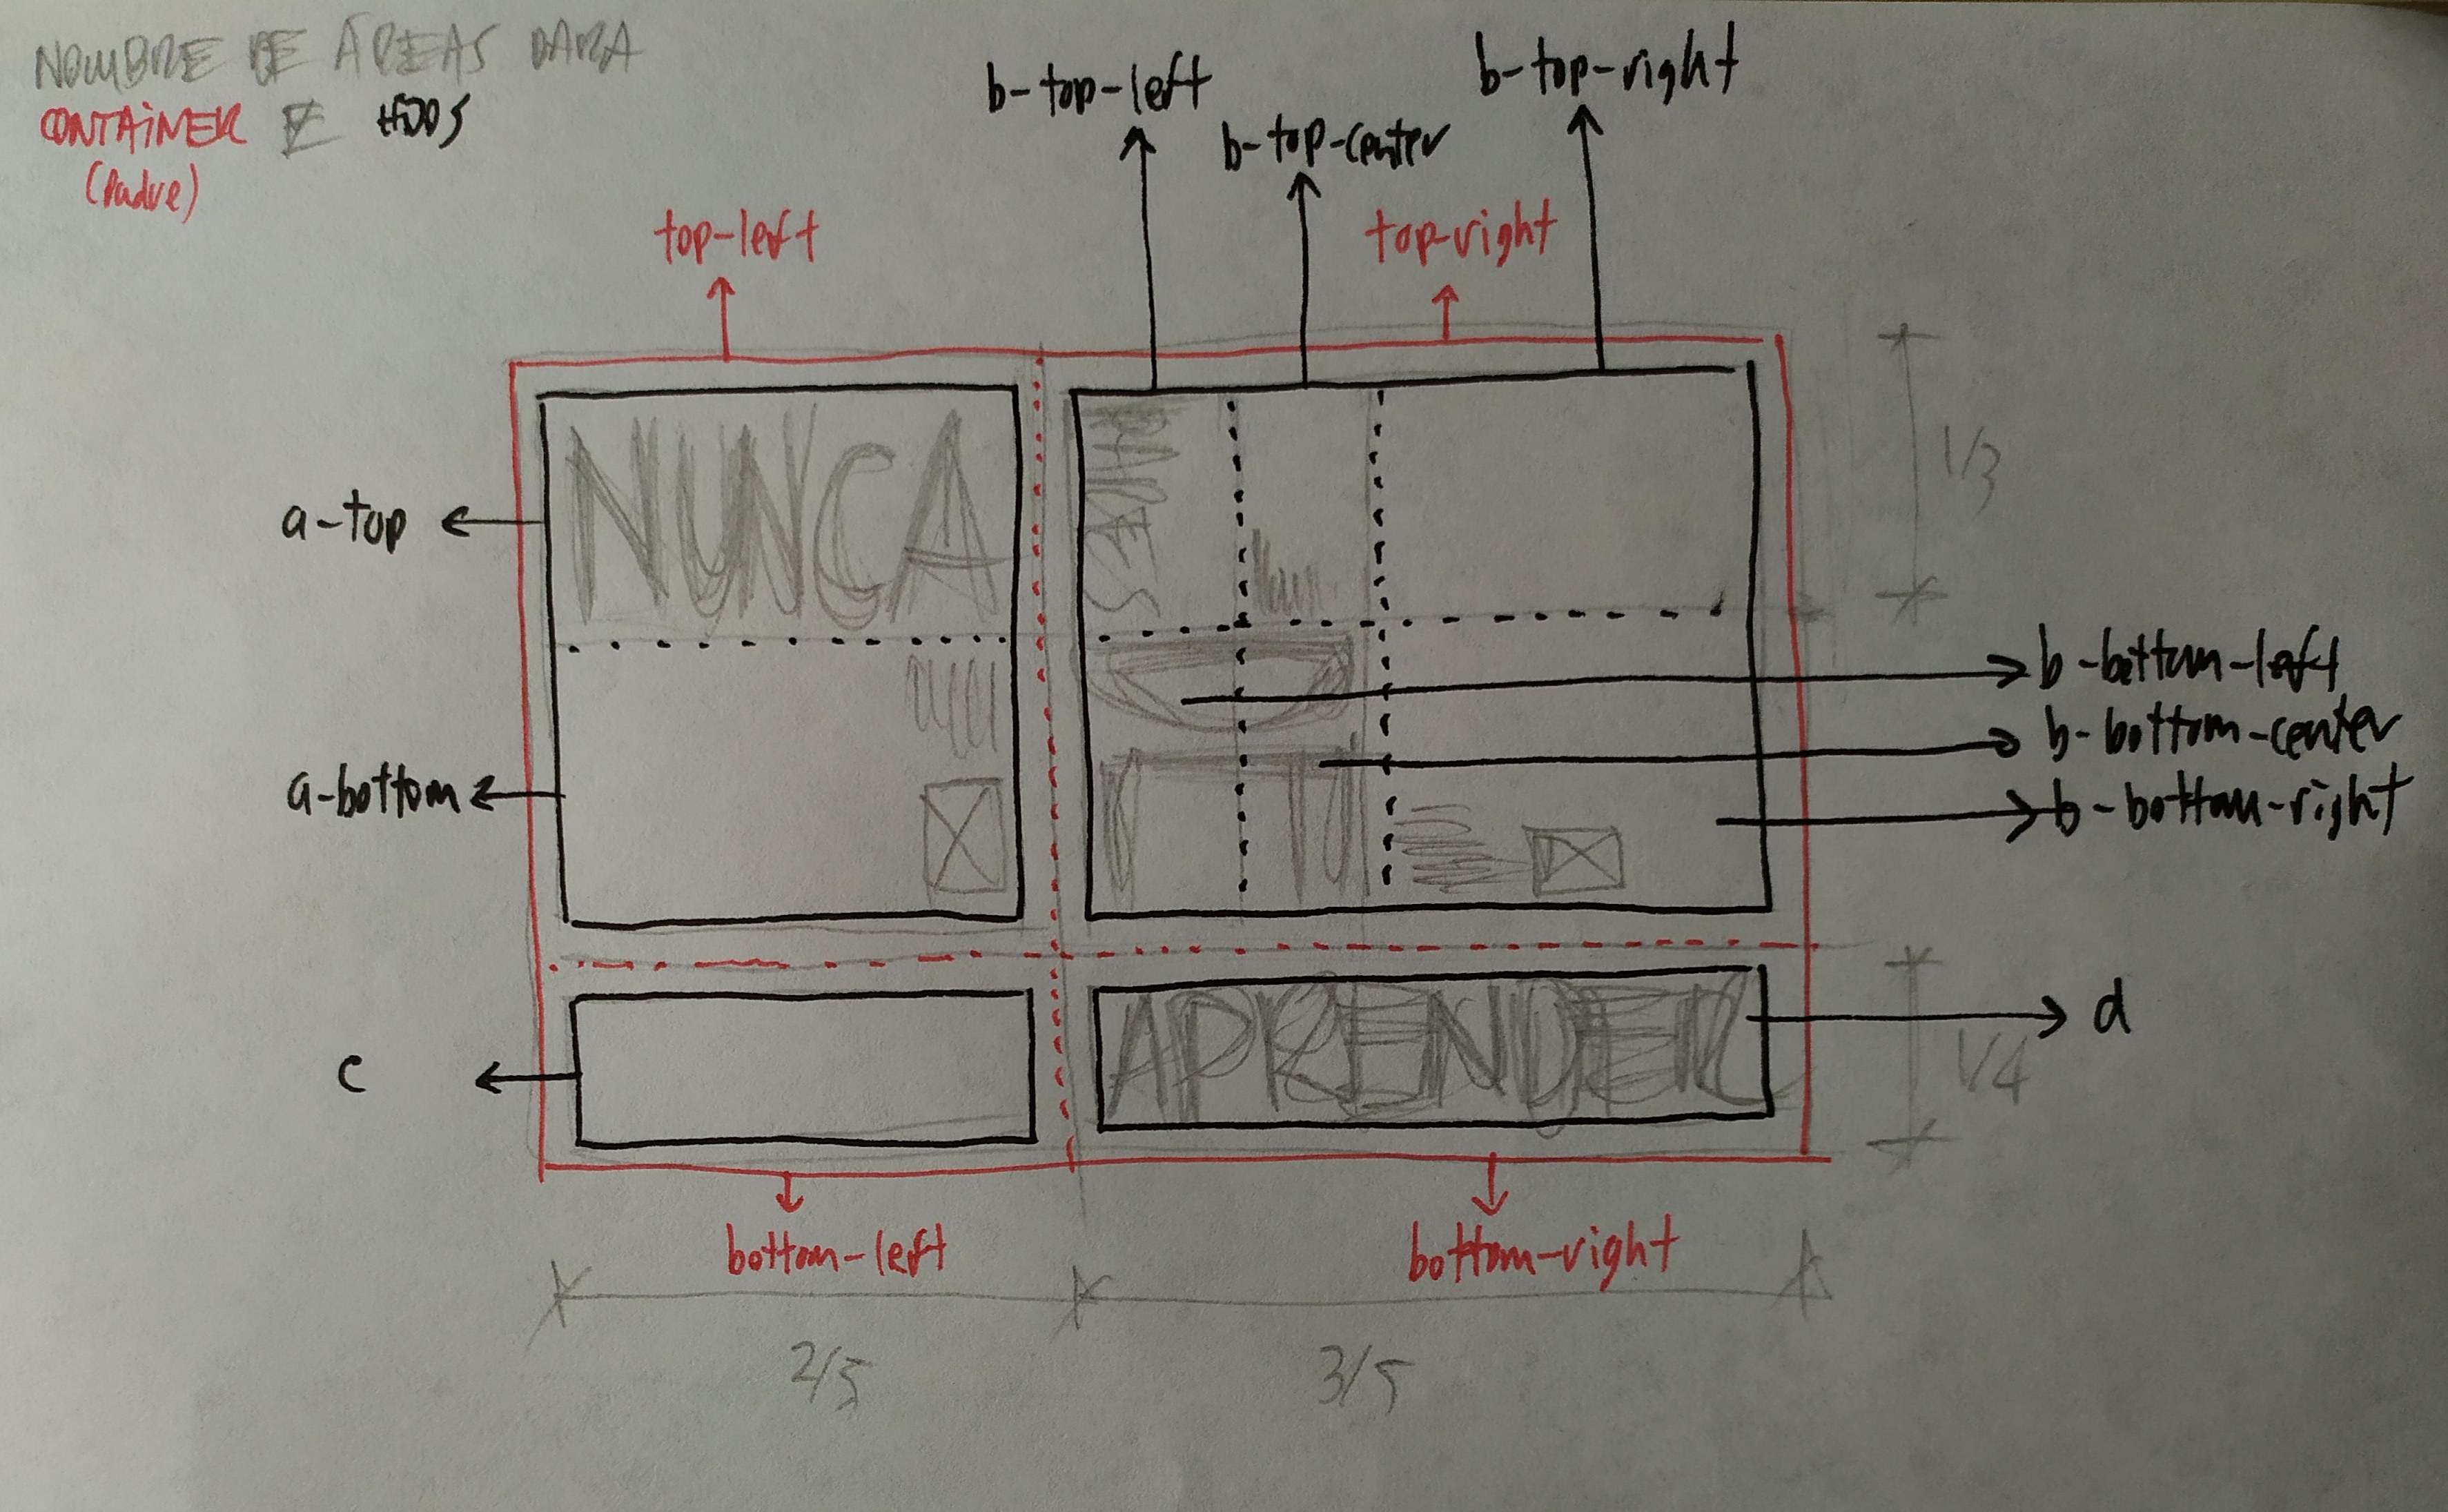 NOMBRE DE ÁREAS PARA
CONTAINER E HIJOS
(Padre)
b-top-left
b-top-center
b-top-right
top-left
top-right
NUNCA
a-top
1/3
b-bottom-left
b-bottom-center
b-bottom-right
a-bottom
APRENDER
d
c
1/4
bottom-left
bottom-right
2/5
3/5